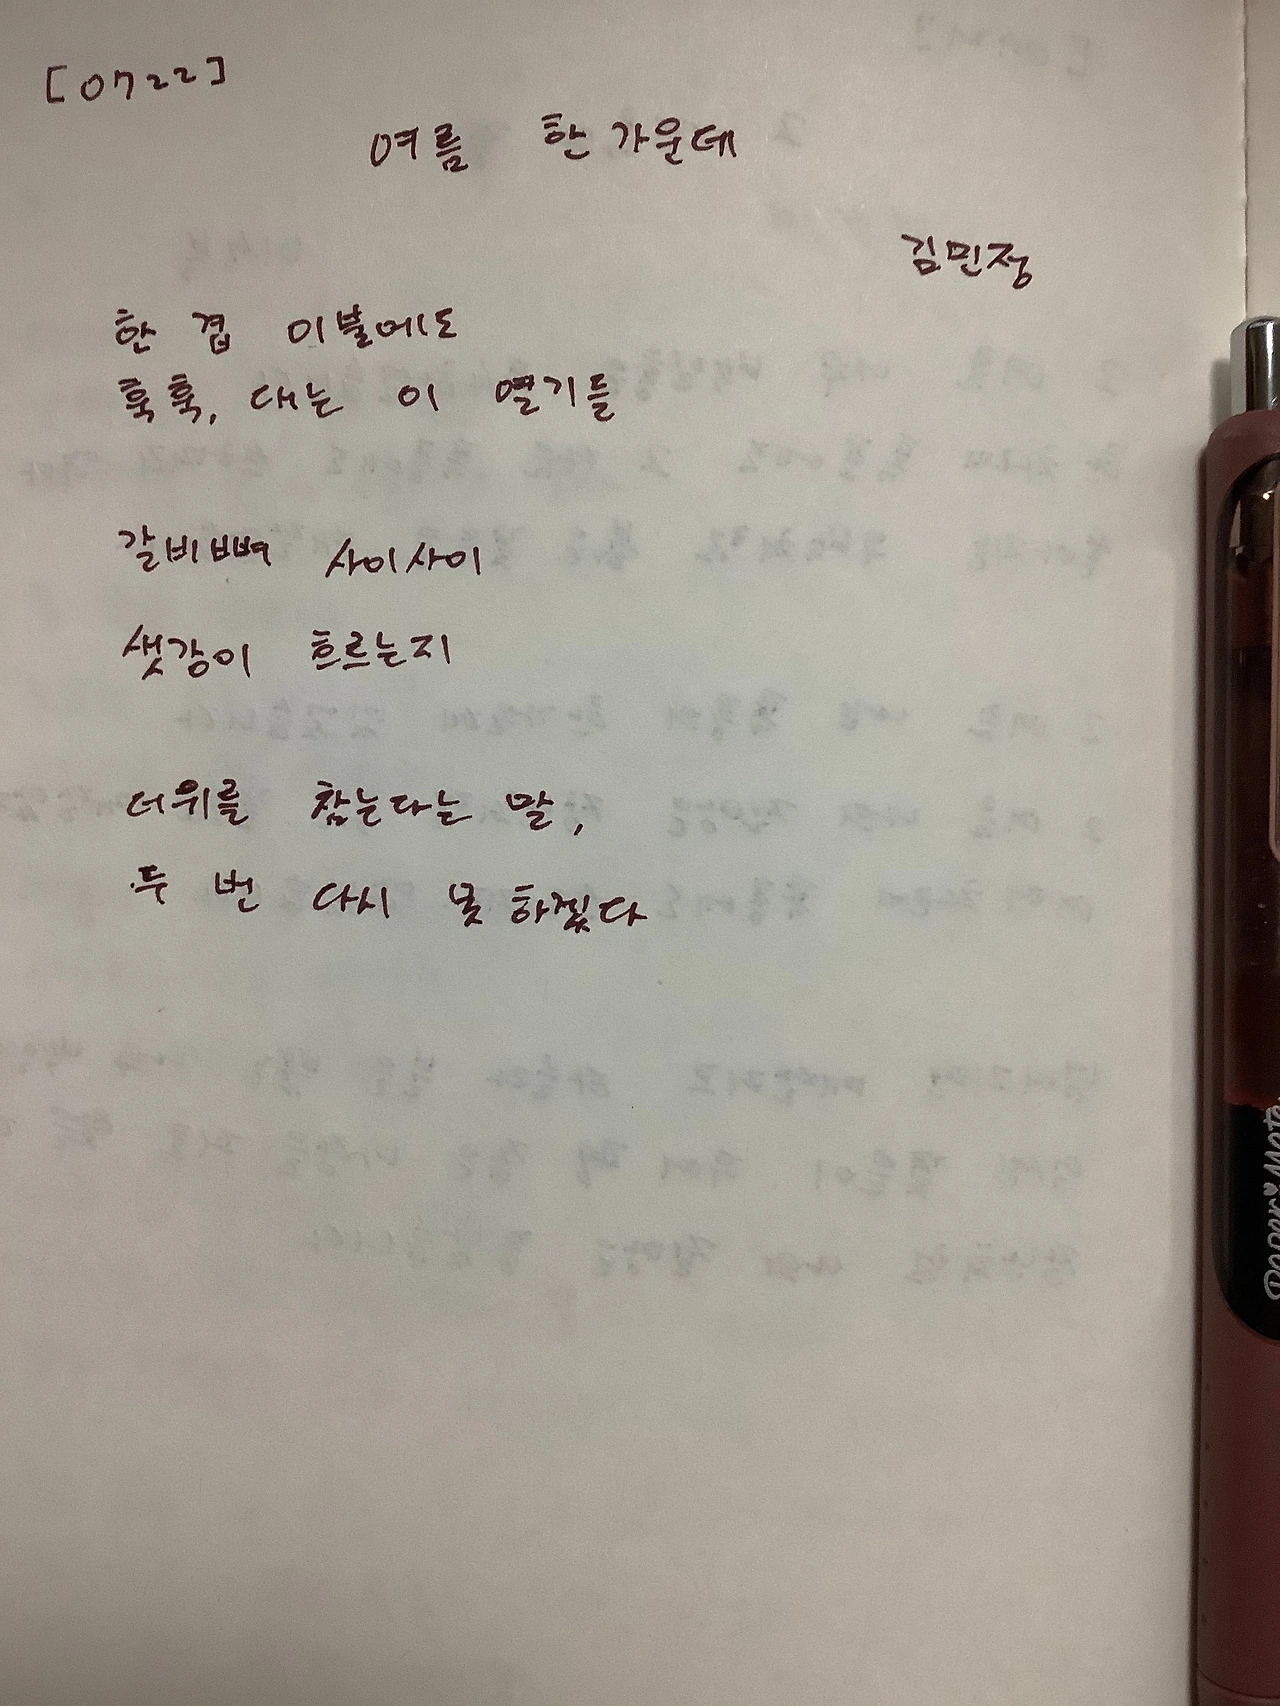 [0722]
여름 한가운데
김민정
한 겹 이불에도
훅훅, 대는 이 열기들
갈비뼈 사이사이
샛강이 흐르는지
더위를 참는다는 말,
두 번 다시 못 하겠다
Paper Mate